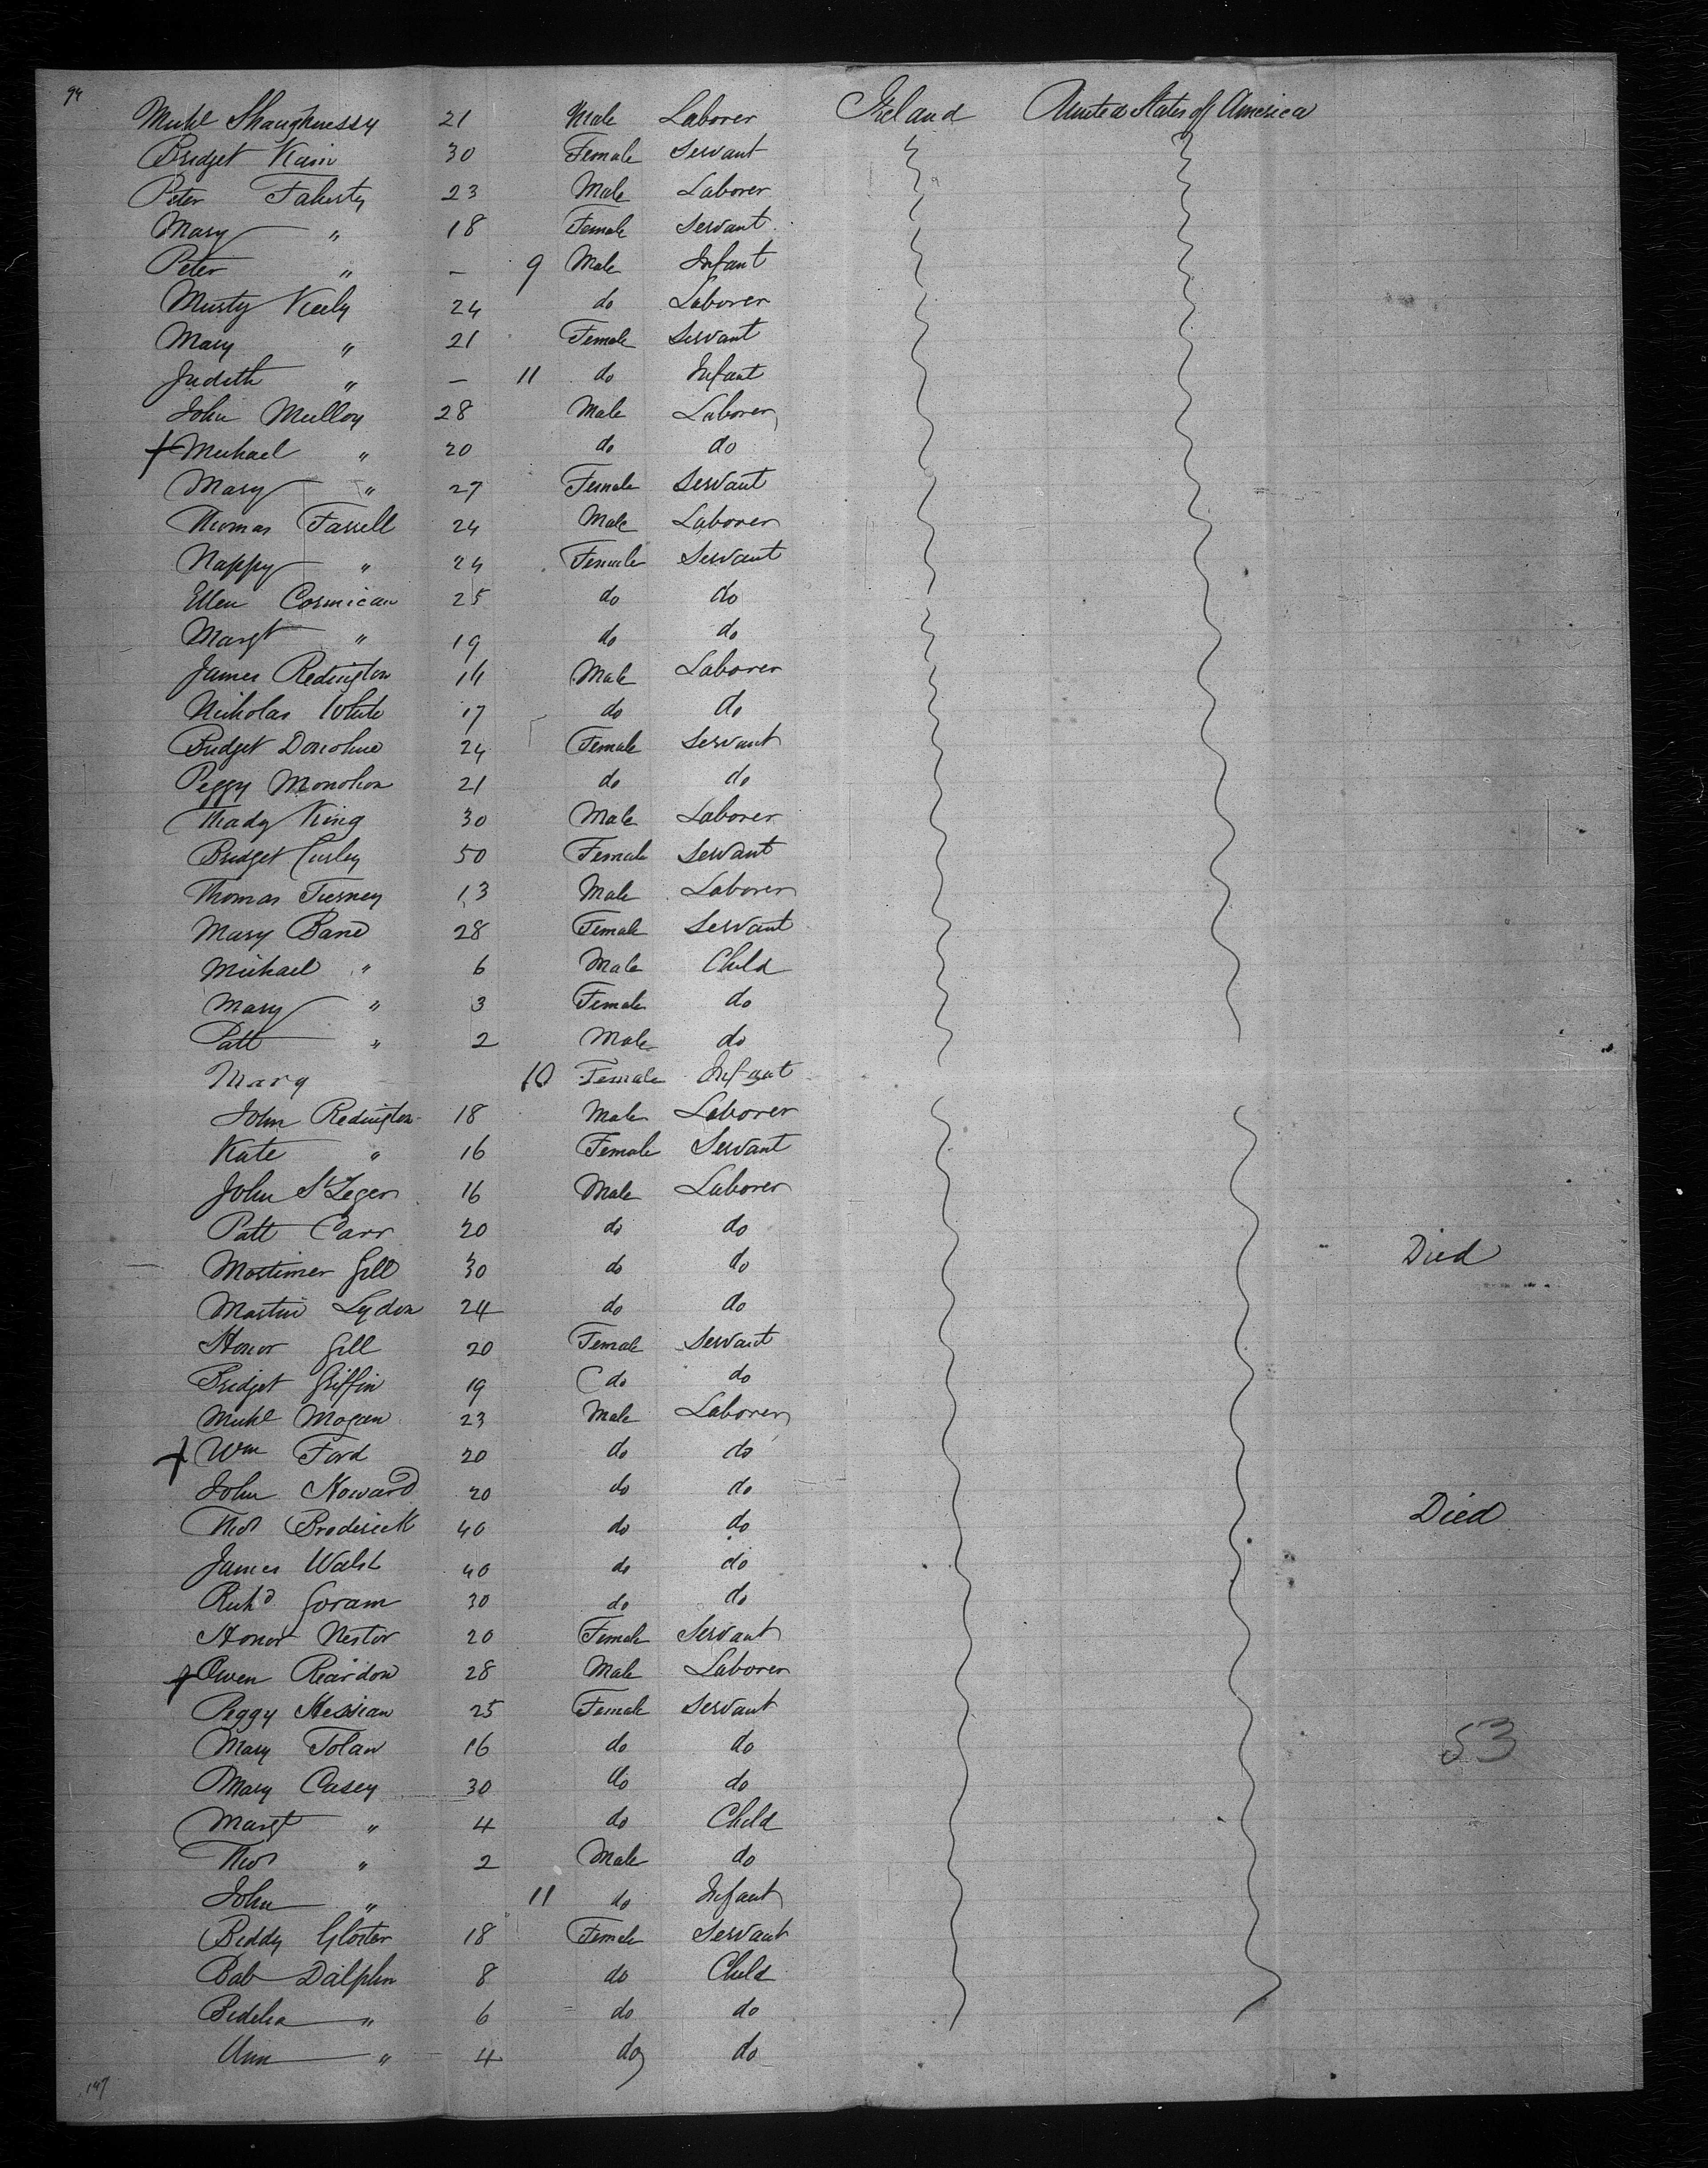 94
Michl Shaughnessy 21 Male Laborer Ireland United States of America
Bridget Kain 30 Female Servant
Peter Faherty 23 Male Laborer
Mary " 18 Female Servant
Peter " — 9 Male Infant
Murty Keely 24 do Laborer
Mary " 21 Female Servant
Judith " — 11 do Infant
John Mulloy 28 Male Laborer
+ Michael " 20 do do
Mary " 27 Female Servant
Thomas Farrell 24 Male Laborer
Nappy " 24 Female Servant
Ellen Cormican 25 do do
Margt " 19 do do
James Redington 14 Male Laborer
Nicholas White 17 do do
Bridget Donohue 24 Female Servant
Peggy Monohon 21 do do
Thady King 30 Male Laborer
Bridget Curley 50 Female Servant
Thomas Tierney 13 Male Laborer
Mary Bane 28 Female Servant
Michael " 6 Male Child
Mary " 3 Female do
Patt " 2 Male do
Mary 10 Female Infant
John Redington 18 Male Laborer
Kate " 16 Female Servant
John St Leger 16 Male Laborer
Patt Carr 20 do do
Mortimer Gill 30 do do Died
Martin Lydon 24 do do
Honor Gill 20 Female Servant
Bridget Griffin 19 do do
Michl Mogan 23 Male Laborer
+ Wm Ford 20 do do
John Howard 20 do do
Thos Broderick 40 do do Died
James Walsh 40 do do
Richd Goram 30 do do
Honor Nestor 20 Female Servant
+ Owen Reardon 28 Male Laborer
Peggy Hessian 25 Female Servant
Mary Tolan 16 do do 53
Mary Casey 30 do do
Margt " 4 do Child
Thos " 2 Male do
John " 11 do Infant
Biddy Gloster 18 Female Servant
Bab Dalphin 8 do Child
Bidelia " 6 do do
Ann " 4 do do
147